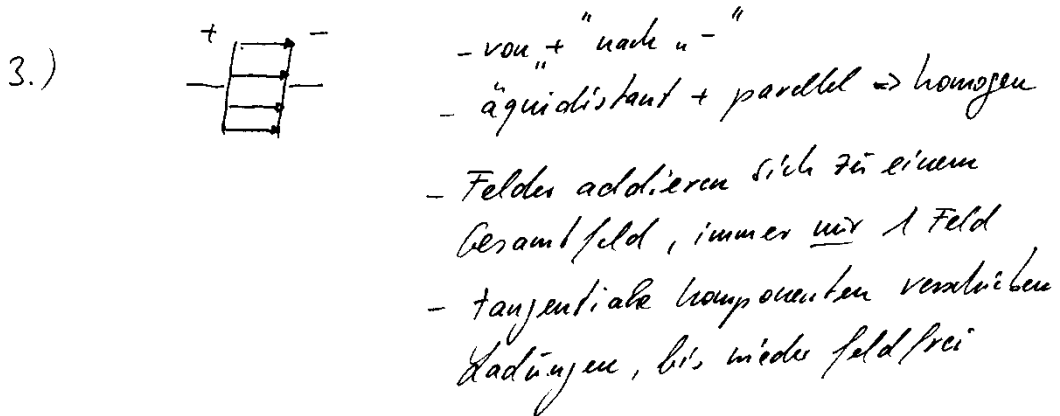 3.)
+ -
- von "+" nach "-"
- äquidistant + parallel => homogen
- Felder addieren sich zu einem
Gesamtfeld, immer nur 1 Feld
- tangentiale Komponenten verschieben
Ladungen, bis wieder feldfrei